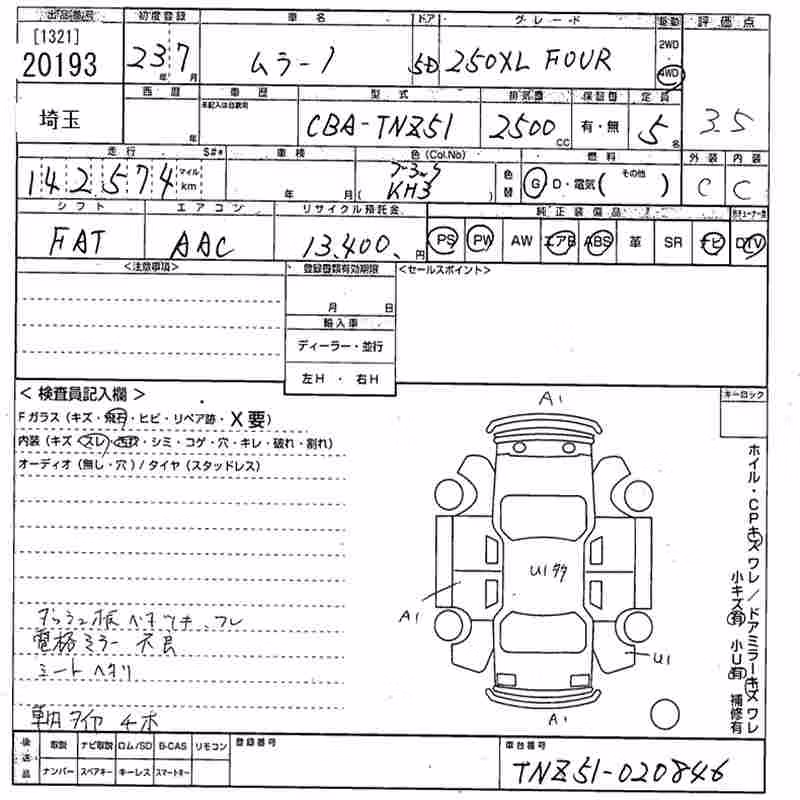 出品番号 初度登録 車名 ドア グレード 駆動 評価点
[1321]
20193 23年 7月 ムラーノ 5D 250XL FOUR 2WD 4WD 3.5
埼玉 西暦 年 車歴 未記入は自家用 型式 CBA-TNZ51 排気量 2500cc 保証書 有・無 定員 5名
走行 S#* 車検 色(Col.No) 燃料 外装 内装
142574 マイル km 年 月 ( KH3 ) 色替 G D・電気( その他 ) C C
シフト エアコン リサイクル預託金 純正装備品
FAT AAC 13,400円 PS PW AW エアB ABS 革 SR ナビ DTV
<注意事項> 登録書類有効期限 <セールスポイント>
月 日
輸入車
ディーラー・並行
左H ・ 右H
<検査員記入欄> キーロック
Fガラス(キズ・飛石・ヒビ・リペア跡・X要)
内装(キズ・スレ・凹・シミ・コゲ・穴・キレ・破れ・割れ)
オーディオ(無し・穴)/タイヤ(スタッドレス)
A1
U1
A1
U1
A1
ホイル・CPキズワレ/ドアミラーキズワレ
小キズ有 小U有 補修有
電格ミラー不良
シートヘタリ
車内タイヤ4本
後送品 取説 ナビ取説 ロム/SD B-CAS リモコン 登録番号 車台番号
ナンバー スペアキー キーレス スマートキー TNZ51-020846